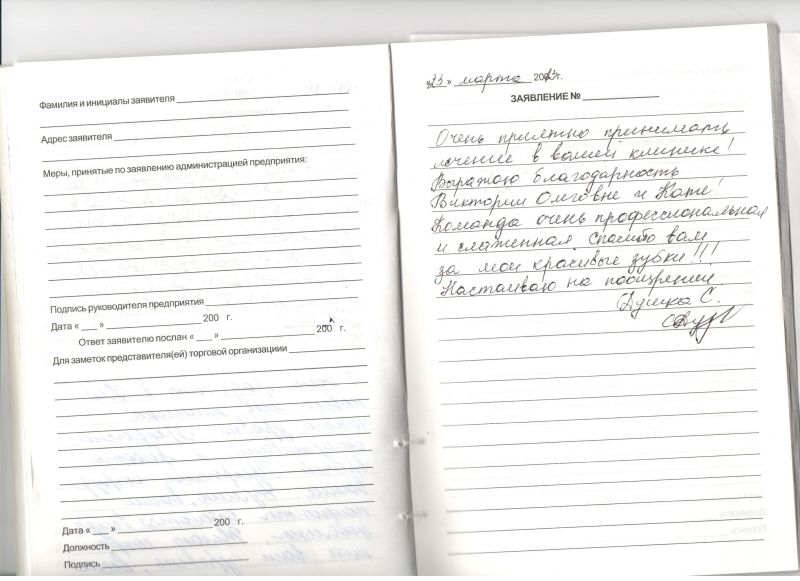 Фамилия и инициалы заявителя
Адрес заявителя
Меры, принятые по заявлению администрацией предприятия:
Подпись руководителя предприятия
Дата « » 200 г.
Ответ заявителю послан « » 200 г.
Для заметок представителя(ей) торговой организациии
Дата « » 200 г.
Должность
Подпись
» марта г.
ЗАЯВЛЕНИЕ №
Очень приятно принимать
лечение в вашей клинике!
Выражаю благодарность
Виктории Олеговне и Кате!
Команда очень профессиональная
и слаженная. Спасибо вам
за мои красивые зубки!!!
Настаиваю на поощрении
С.